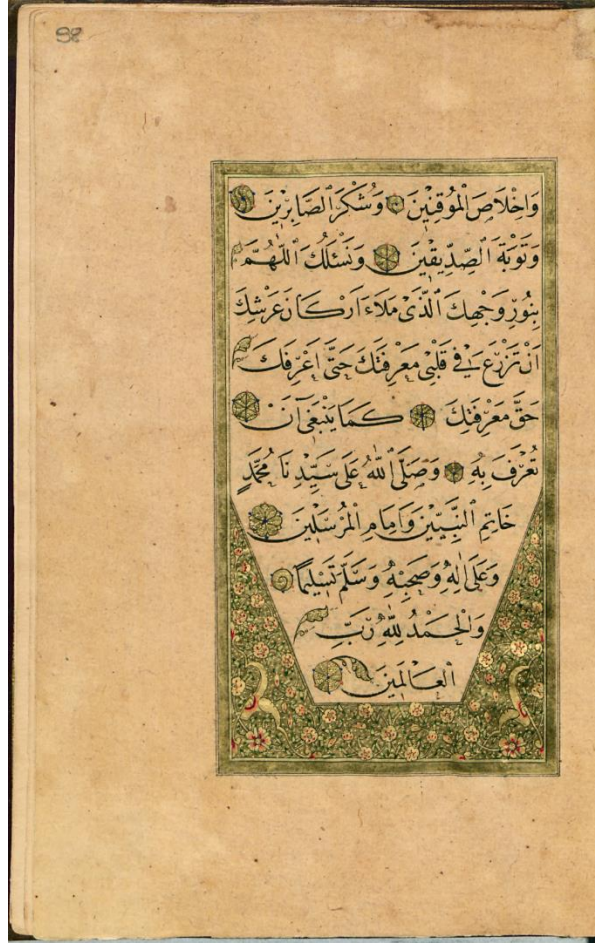 وَاِخْلَاصَ الْمُوقِنِيْنَ وَشُكْرَ الصَّابِرِيْنَ
وَتَوْبَةَ الصِّدِّيقِيْنَ وَنَسْئَلُكَ اللّٰهُمَّ
بِنُورِ وَجْهِكَ الَّذِى مَلَاءَ اَرْكَانَ عَرْشِكَ
اَنْ تَزْرَعَ فِى قَلْبِى مَعْرِفَتَكَ حَتَّى اَعْرِفَكَ
حَقَّ مَعْرِفَتِكَ كَمَا يَنْبَغِى اَنْ
تُعْرَفَ بِهِ وَصَلَّى اللّٰهُ عَلَى سَيِّدِنَا مُحَمَّدٍ
خَاتِمِ النَّبِيّٖنَ وَاِمَامِ الْمُرْسَلِيْنَ
وَعَلَى اٰلِهِ وَصَحْبِهِ وَسَلَّمَ تَسْلِيمًا
وَالْحَمْدُ لِلّٰهِ رَبِّ
الْعَالَمِيْنَ